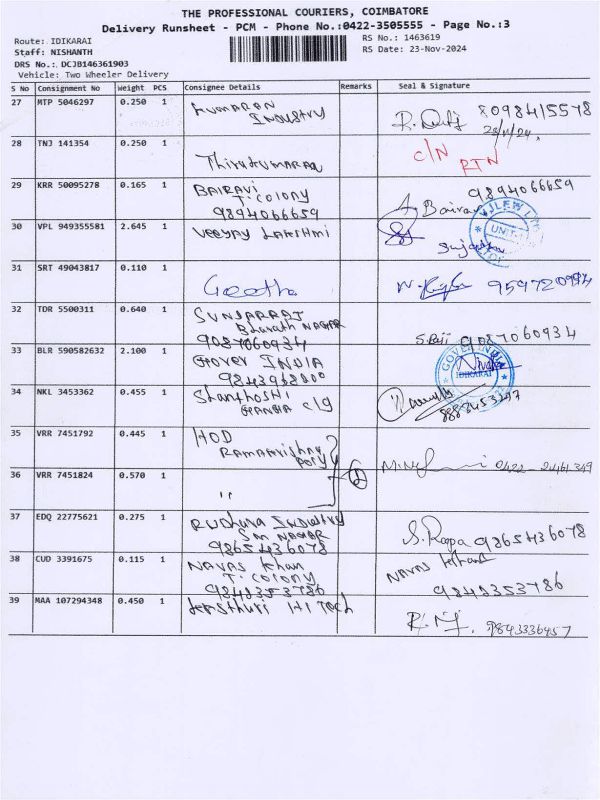 THE PROFESSIONAL COURIERS, COIMBATORE
Delivery Runsheet - PCM - Phone No.:0422-3505555 - Page No.:3
Route: IDIKARAI
RS No.: 1463619
Staff: NISHANTH
RS Date: 23-Nov-2024
DRS No.: DCJB146361903
Vehicle: Two Wheeler Delivery
S No Consignment No Weight PCS Consignee Details Remarks Seal & Signature
27 MTP 5046297 0.250 1 Kumaran
Industry
8098415578
28 TNJ 141354 0.250 1
Thirukumaran
C/N
RTN
29 KRR 50095278 0.165 1 BAIRAVI
T. Colony
9894066659
9894066659
30 VPL 949355581 2.645 1 Veejay Lakshmi
UNIT
Sujatha
31 SRT 49043817 0.110 1
Geetha
959720994
32 TDR 5500311 0.640 1 SUNDARRAJ
Bharath NAGAR
9087060934
9087060934
33 BLR 590582632 2.100 1 Gover INDIA
9843968000
GOVER INDIA
IDIKARAI
34 NKL 3453362 0.455 1 Shanthoshi
35 VRR 7451792 0.445 1 HOD
Ramakrishna
36 VRR 7451824 0.570 1
"
2
0422-2461349
37 EDQ 22775621 0.275 1 Industry
Sai NAGAR
9865436078
S. Roopa 9865436078
38 CUD 3391675 0.115 1 NAVAS Khan
T. Colony
9843353786
NAVAS Khan
9843353786
39 MAA 107294348 0.450 1 Kasthuri HI Tech
9843336457